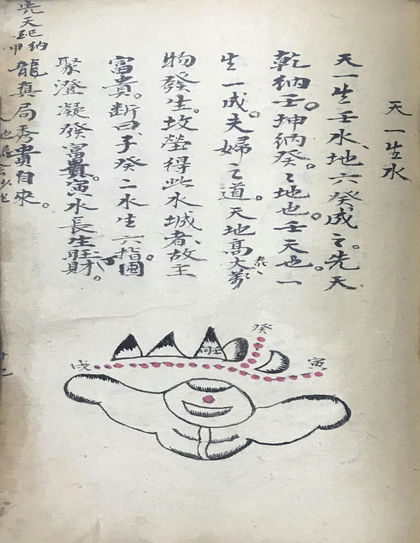 天一生水
天一生壬水、地六癸成之。先天
乾納壬。坤納癸。之地也。壬天也。一
生一成。夫婦之道。天地高大萬
物發生。坟塋得此水城者、故主
富貴。断曰、子癸二水生六指圖
聚澄凝發富貴。寅水長生旺財。
龍真局秀貴自來。
先天
納甲
癸
寅
戌